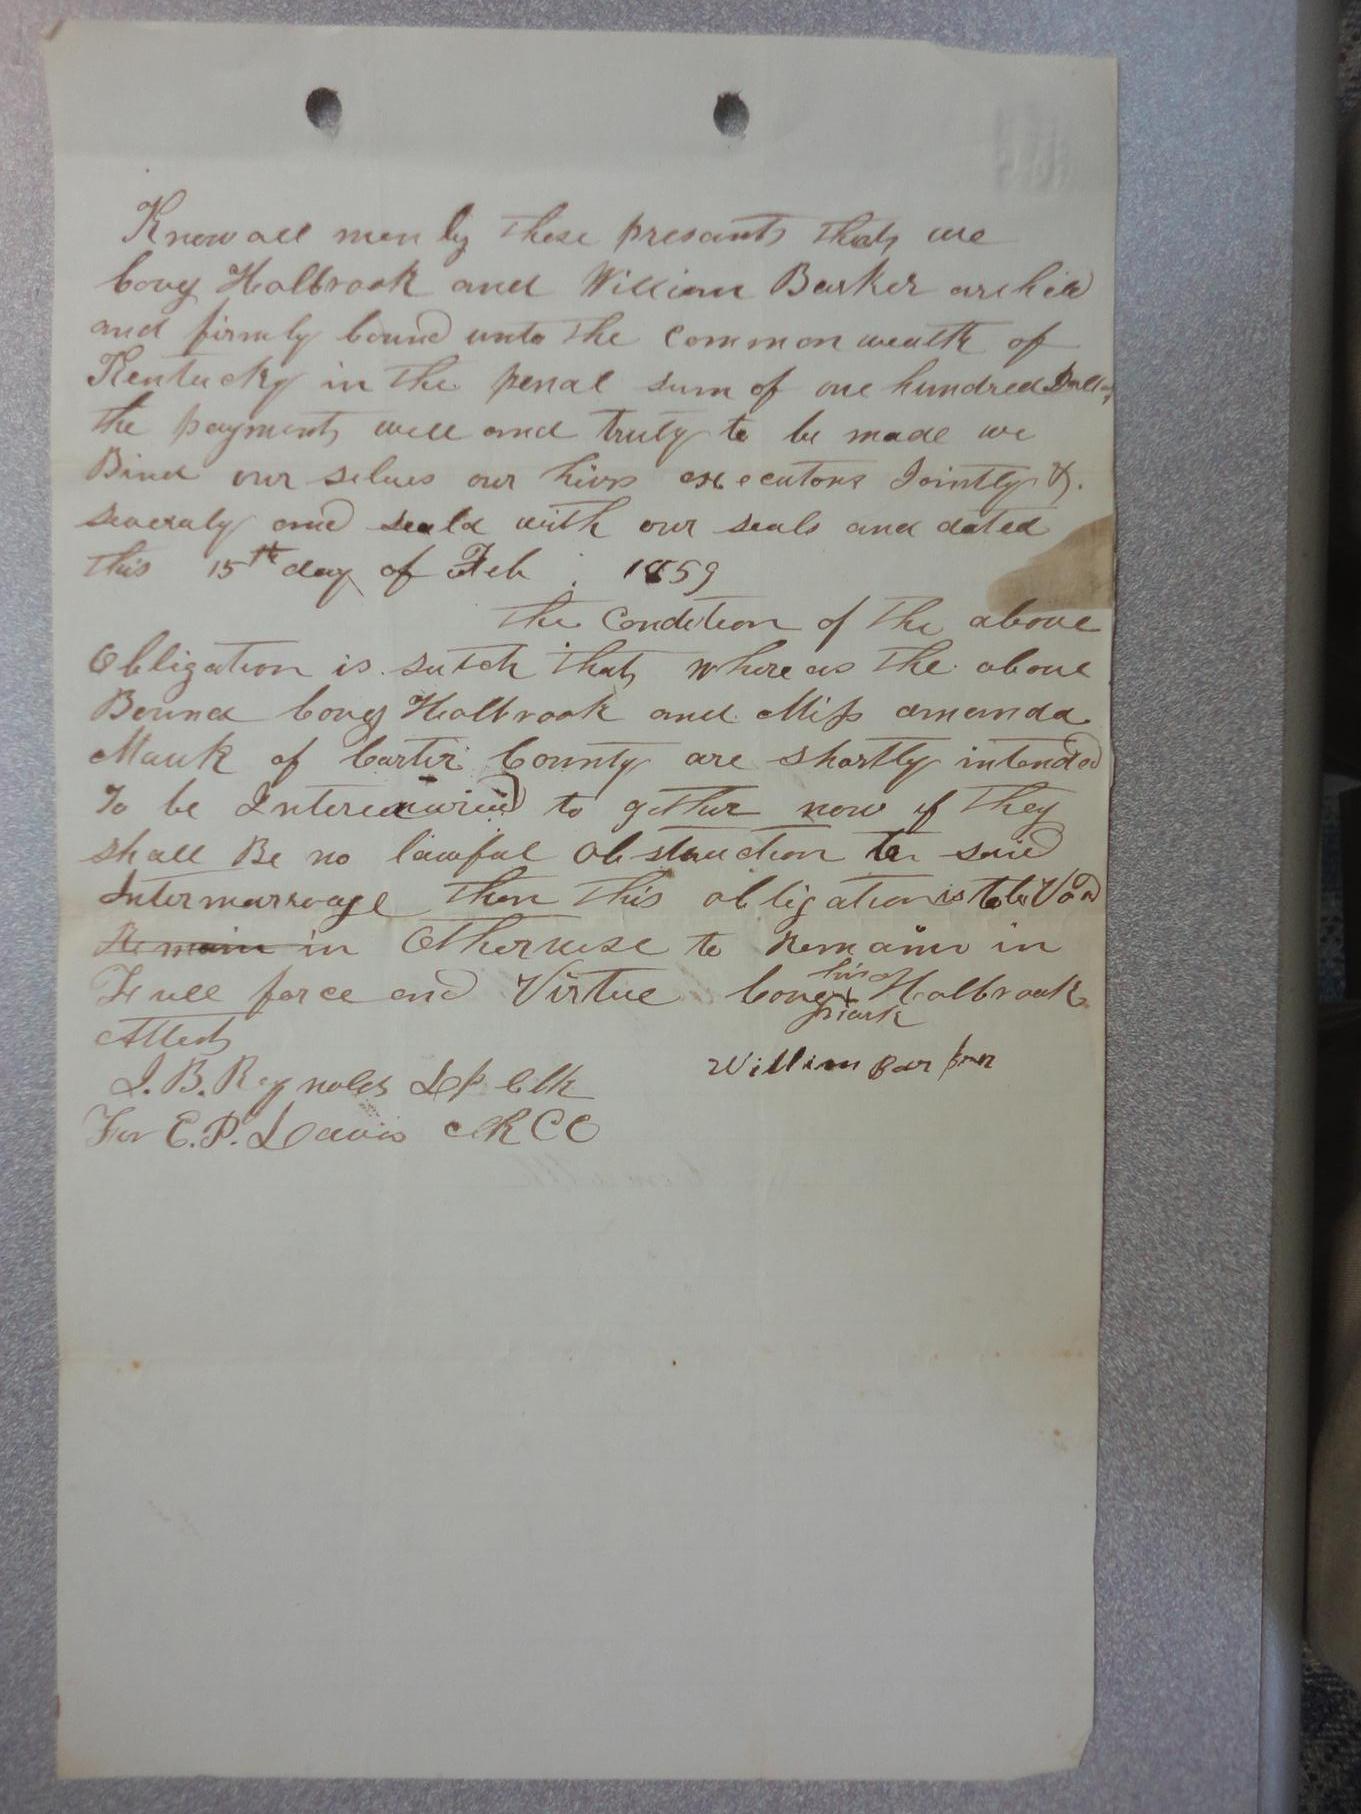 Know all men by these presants that we
Covy Holbrook and William Barker are hild
and firmly bound unto the Common wealth of
Kentucky in the penal sum of one hundred Dollars
the payment well and truly to be made we
Bind our selves our hiers executors Jointly &.
severaly and seald with our seals and dated
this 15th day of Feb 1859
the Condition of the above
Obligation is sutch that where as the above
Bound Covy Holbrook and Miss amanda
Mauk of Carter County are shortly intended
To be Intermaried to gether now if they
shall Be no lawful obstruction to said
Intermarroage then this obligation is to be Void
Remain in Otherwise to Remain in
Full force and Virtue Covy his Holbrook
mark
Attest
William Barker
J. B. Reynolds Dp Clk
For E. P. Davis C K C C